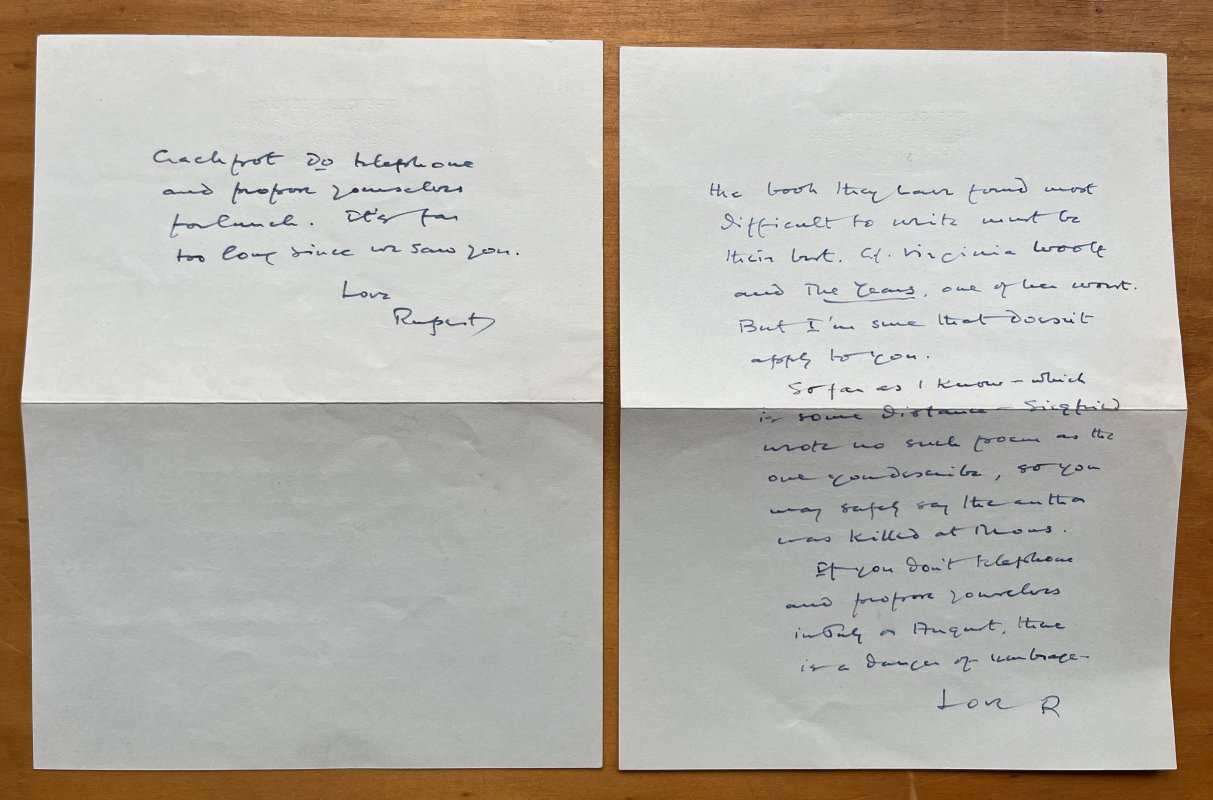 Crackpot Do telephone
and propose yourselves
for lunch. It's far
too long since we saw you.
Love
Rupert
the book they have found most
difficult to write must be
their best. Cf. Virginia Woolf
and The Years, one of her worst.
But I'm sure that doesn't
apply to you.
So far as I know – which
is some distance – Siegfried
wrote no such poem as the
one you describe, so you
may safely say the author
was killed at Mons.
If you don't telephone
and propose yourselves
in July or August, there
is a danger of umbrage.
Love R